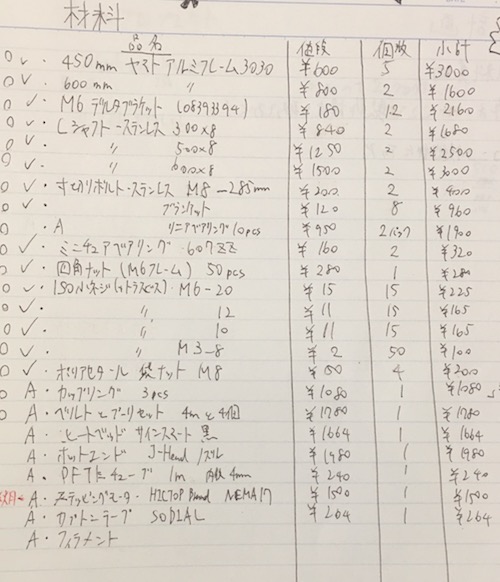 材料
品名 値段 個数 小計
0 ✓ ・ 450mm ヤマト アルミフレーム3030 ¥600 5 ¥3000
0 ✓ ・ 600mm 〃 ¥800 2 ¥1600
0 ✓ ・ M6 デルタブラケット (08393394) ¥180 12 ¥2160
0 ✓ ・ Lシャフト-ステンレス 300×8 ¥840 2 ¥1680
0 ✓ ・ 〃 500×8 ¥1250 2 ¥2500
0 ✓ ・ 〃 600×8 ¥1500 2 ¥3000
0 ✓ ・ 寸切りボルト・ステンレス M8-285mm ¥200 2 ¥400
0 ✓ ・ ブランケット ¥120 8 ¥960
0 ・ A リニアベアリング10pcs ¥950 2パック ¥1900
0 ✓ ・ ミニチュアベアリング・607ZZ ¥160 2 ¥320
0 ✓ ・ 四角ナット(M6フレーム) 50pcs ¥280 1 ¥280
0 ✓ ・ ISO小ネジ(+トラス) ・M6-20 ¥15 15 ¥225
0 ✓ ・ 〃 12 ¥11 15 ¥165
0 ✓ ・ 〃 10 ¥11 15 ¥165
0 ✓ ・ 〃 M3-8 ¥2 50 ¥100
0 ✓ ・ ポリアセタール ナット M8 ¥50 4 ¥200
0 A ・ カップリング 3pcs ¥1080 1 ¥1080
0 A ・ ベルトとプーリセット 4mと4個 ¥1780 1 ¥1780
A ・ ヒートベッド サインスマート 黒 ¥1664 1 ¥1664
A ・ ホットエンド J-Head ノズル ¥1980 1 ¥1980
A ・ PFTEチューブ 1m 内径4mm ¥240 1 ¥240
A ・ ステッピングモータ・HICTOP Brand NEMA17 ¥1500 1 ¥1500
A ・ カプトンテープ SODIAL ¥264 1 ¥264
A ・ フィラメント